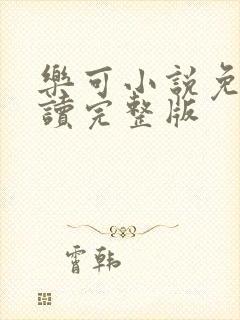 樂可小說免
讀完整版
霄韩